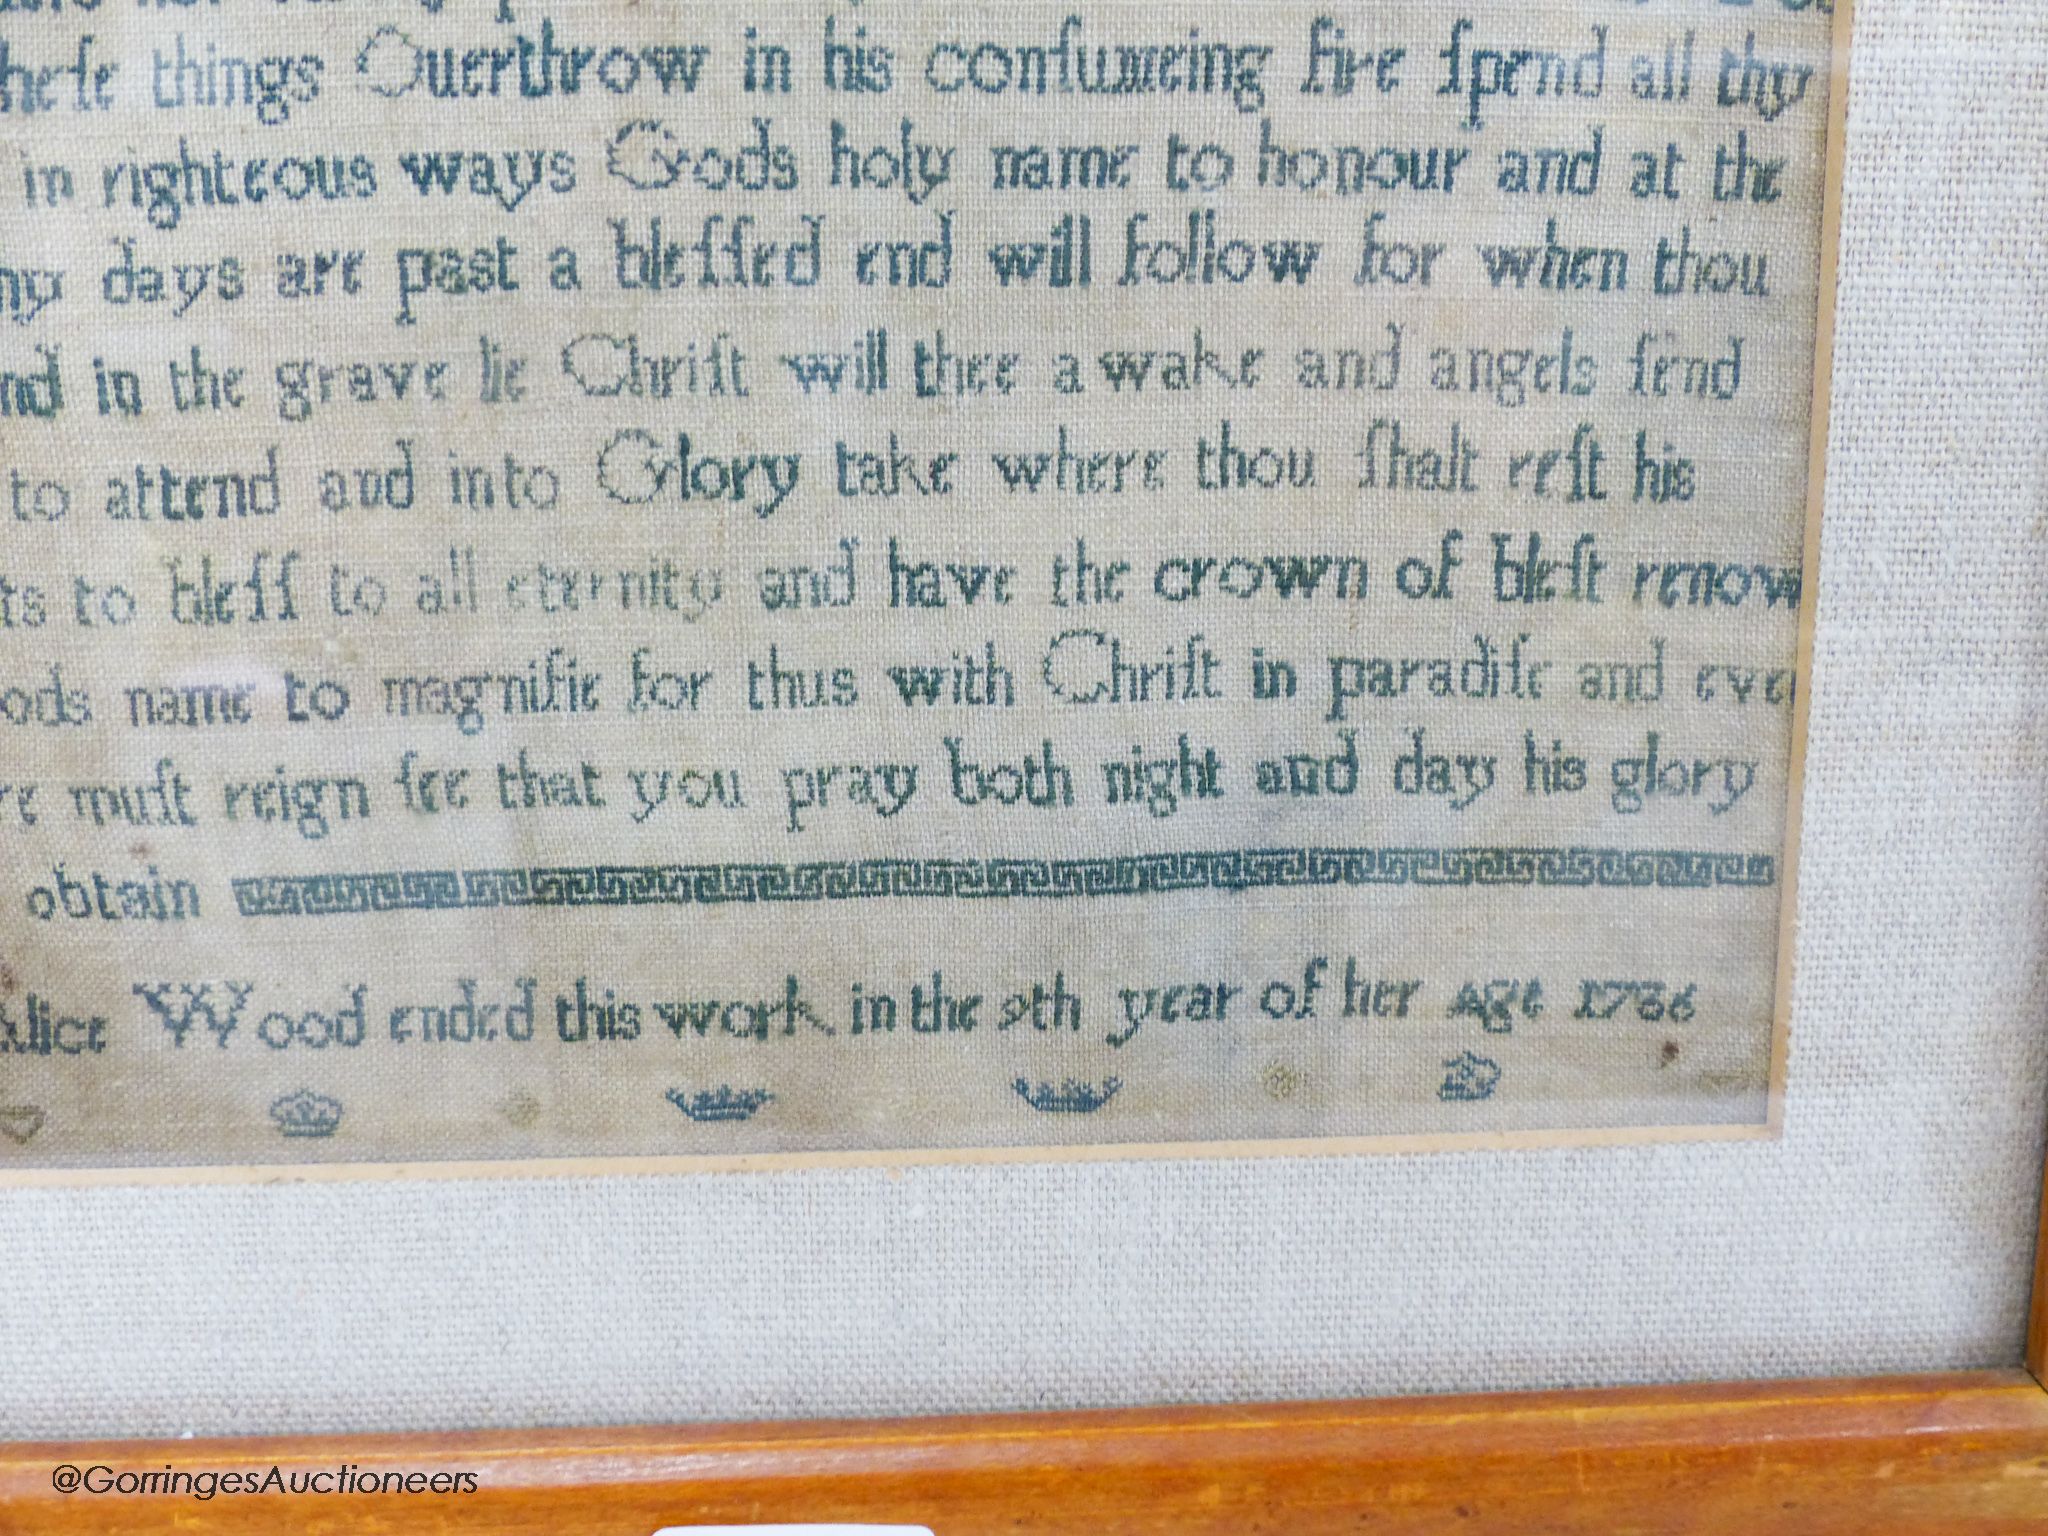 things Ouerthrow in his conſumeing fire ſpend all thy
in righteous ways Gods holy name to honour and at the
days are past a bleſſed end will follow for when thou
in the grave lie Chriſt will thee awake and angels ſend
to attend and into Glory take where thou ſhalt reſt his
to bleſſ to all eternity and have the crown of bleſt renow
name to magnifie for thus with Chriſt in paradiſe and eve
muſt reign ſee that you pray both night and day his glory
obtain
Alice Wood ended this work in the 9th year of her Age 1736
@GorringesAuctioneers